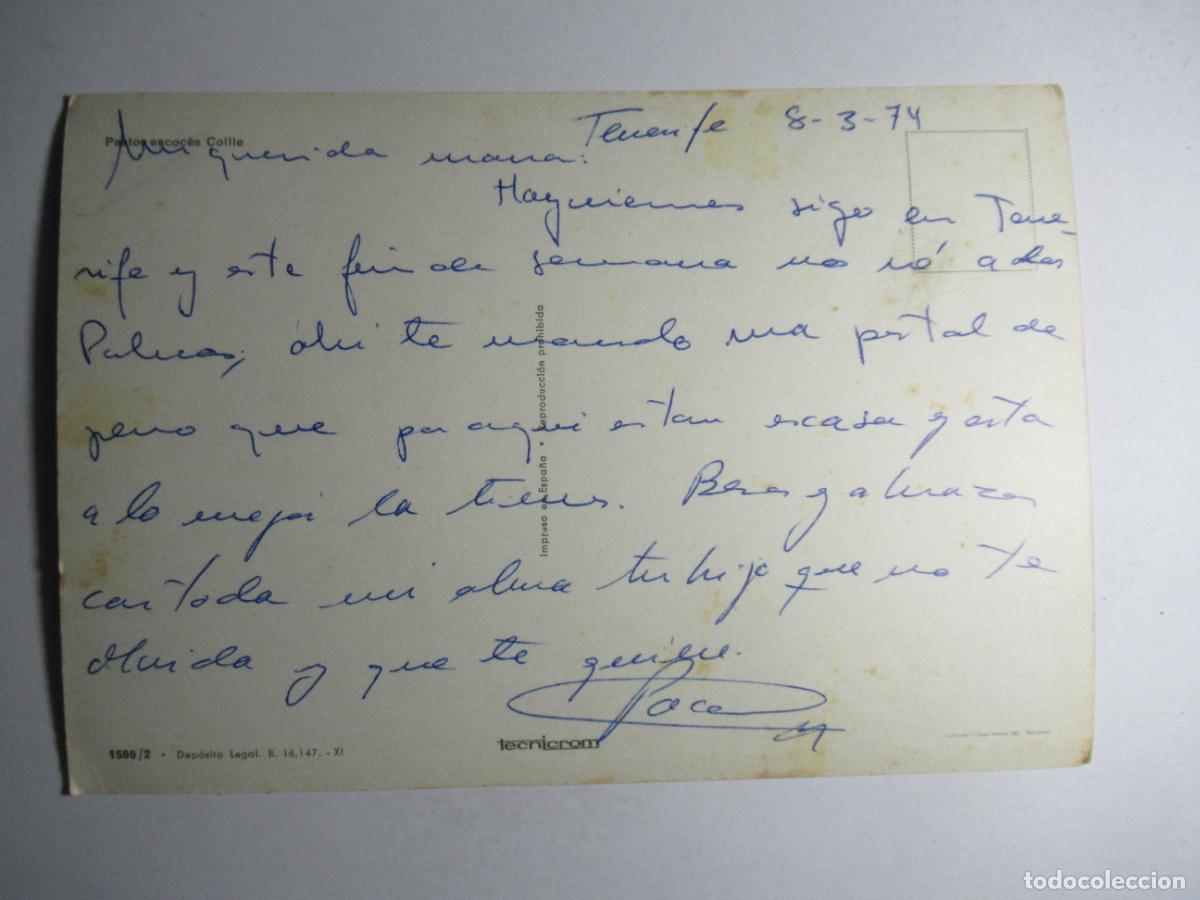 Pastor escocés Collie
Tenerife 8-3-74
Mi querida mama:
Hoy viernes sigo en Tene-
rife y este fin de semana no voy a Las
Palmas, ahi te mando una postal de
perro que por aqui estan escasa y esta
a lo mejor la tienes. Besos y abrazos
con toda mi alma tu hijo que no te
olvida y que te quiere.
Paco
Impreso en España • Reproducción prohibida
1500/2 • Depósito Legal. B. 16.147. - XI
tecnicrom
todocoleccion